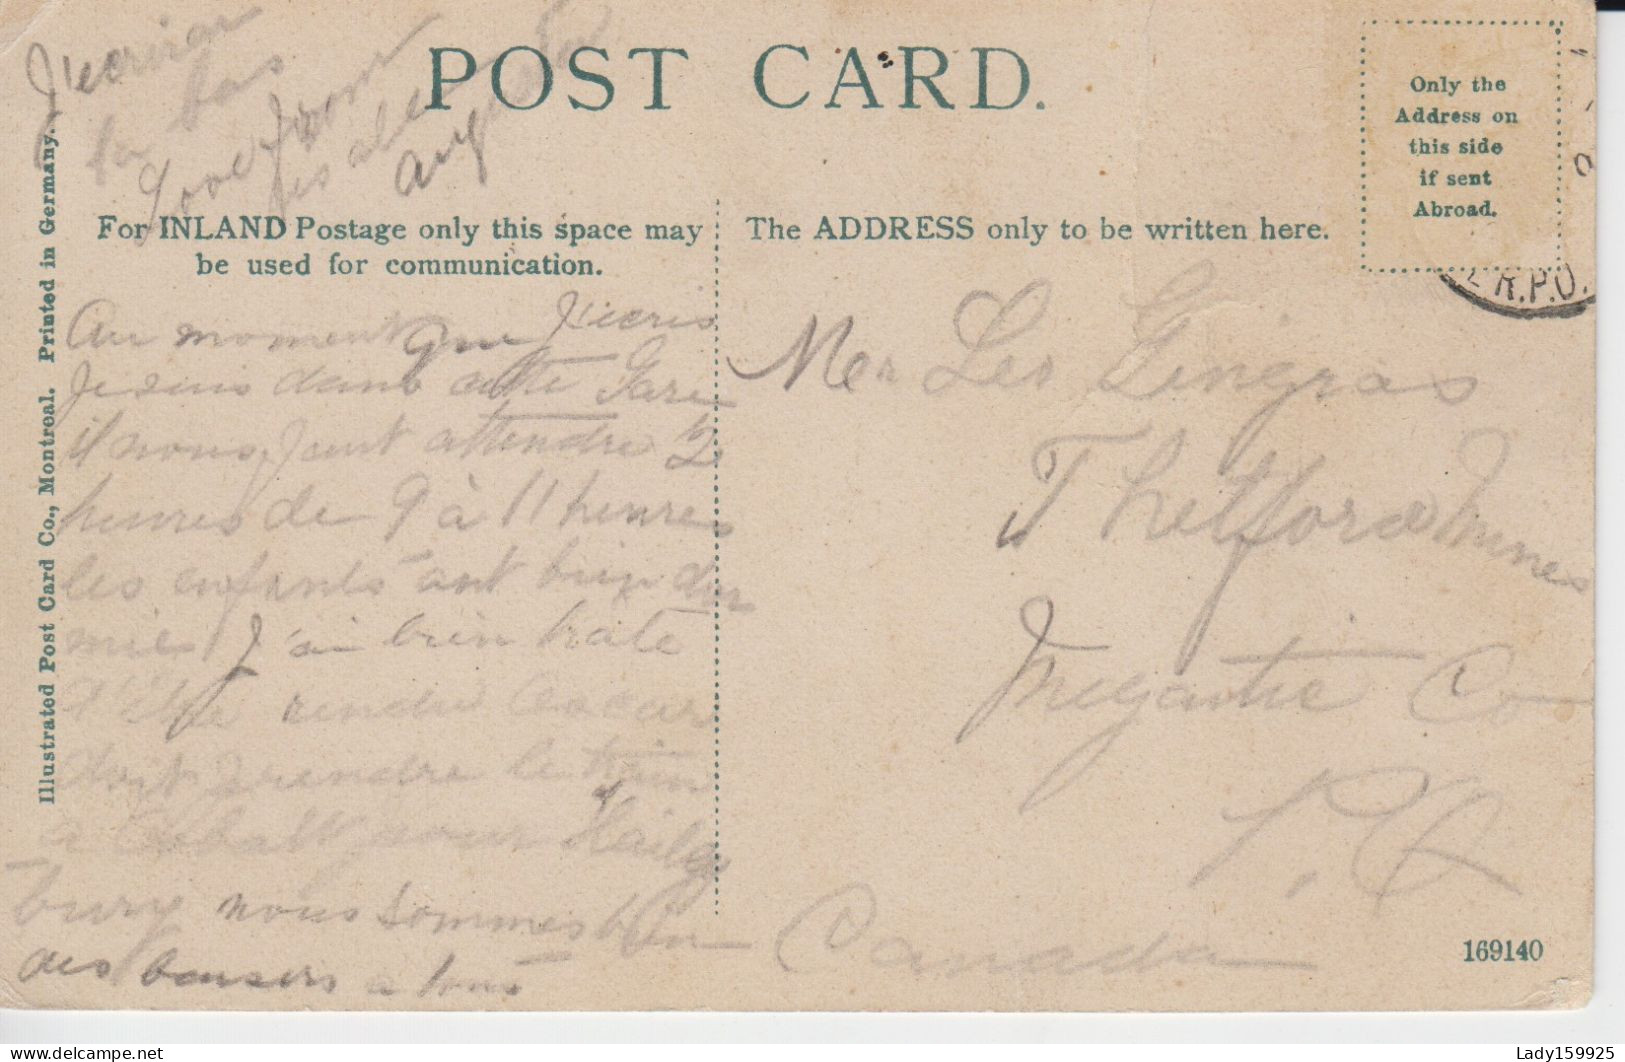 J'ecrirai
la bas
Love from
POST CARD.
Only the
Address on
this side
if sent
Abroad.
For INLAND Postage only this space may
be used for communication.
The ADDRESS only to be written here.
R.P.O.
Au moment que J'ecris
Je suis dans cette Gare
il nous faut attendre 2
heures de 9 à 11 heures
les enfants ont bien dor
mies J'ai bien hate
d'etre rendue Oscar
doit prendre le train
a Cobalt pour Hailey
bury nous sommes bien
des baisers a tous
Mer Leo Gingras
Thetford Mines
Megantic Co
P. Q
Canada
169140
Illustrated Post Card Co., Montreal. Printed in Germany.
Lady159925
delcampe.net